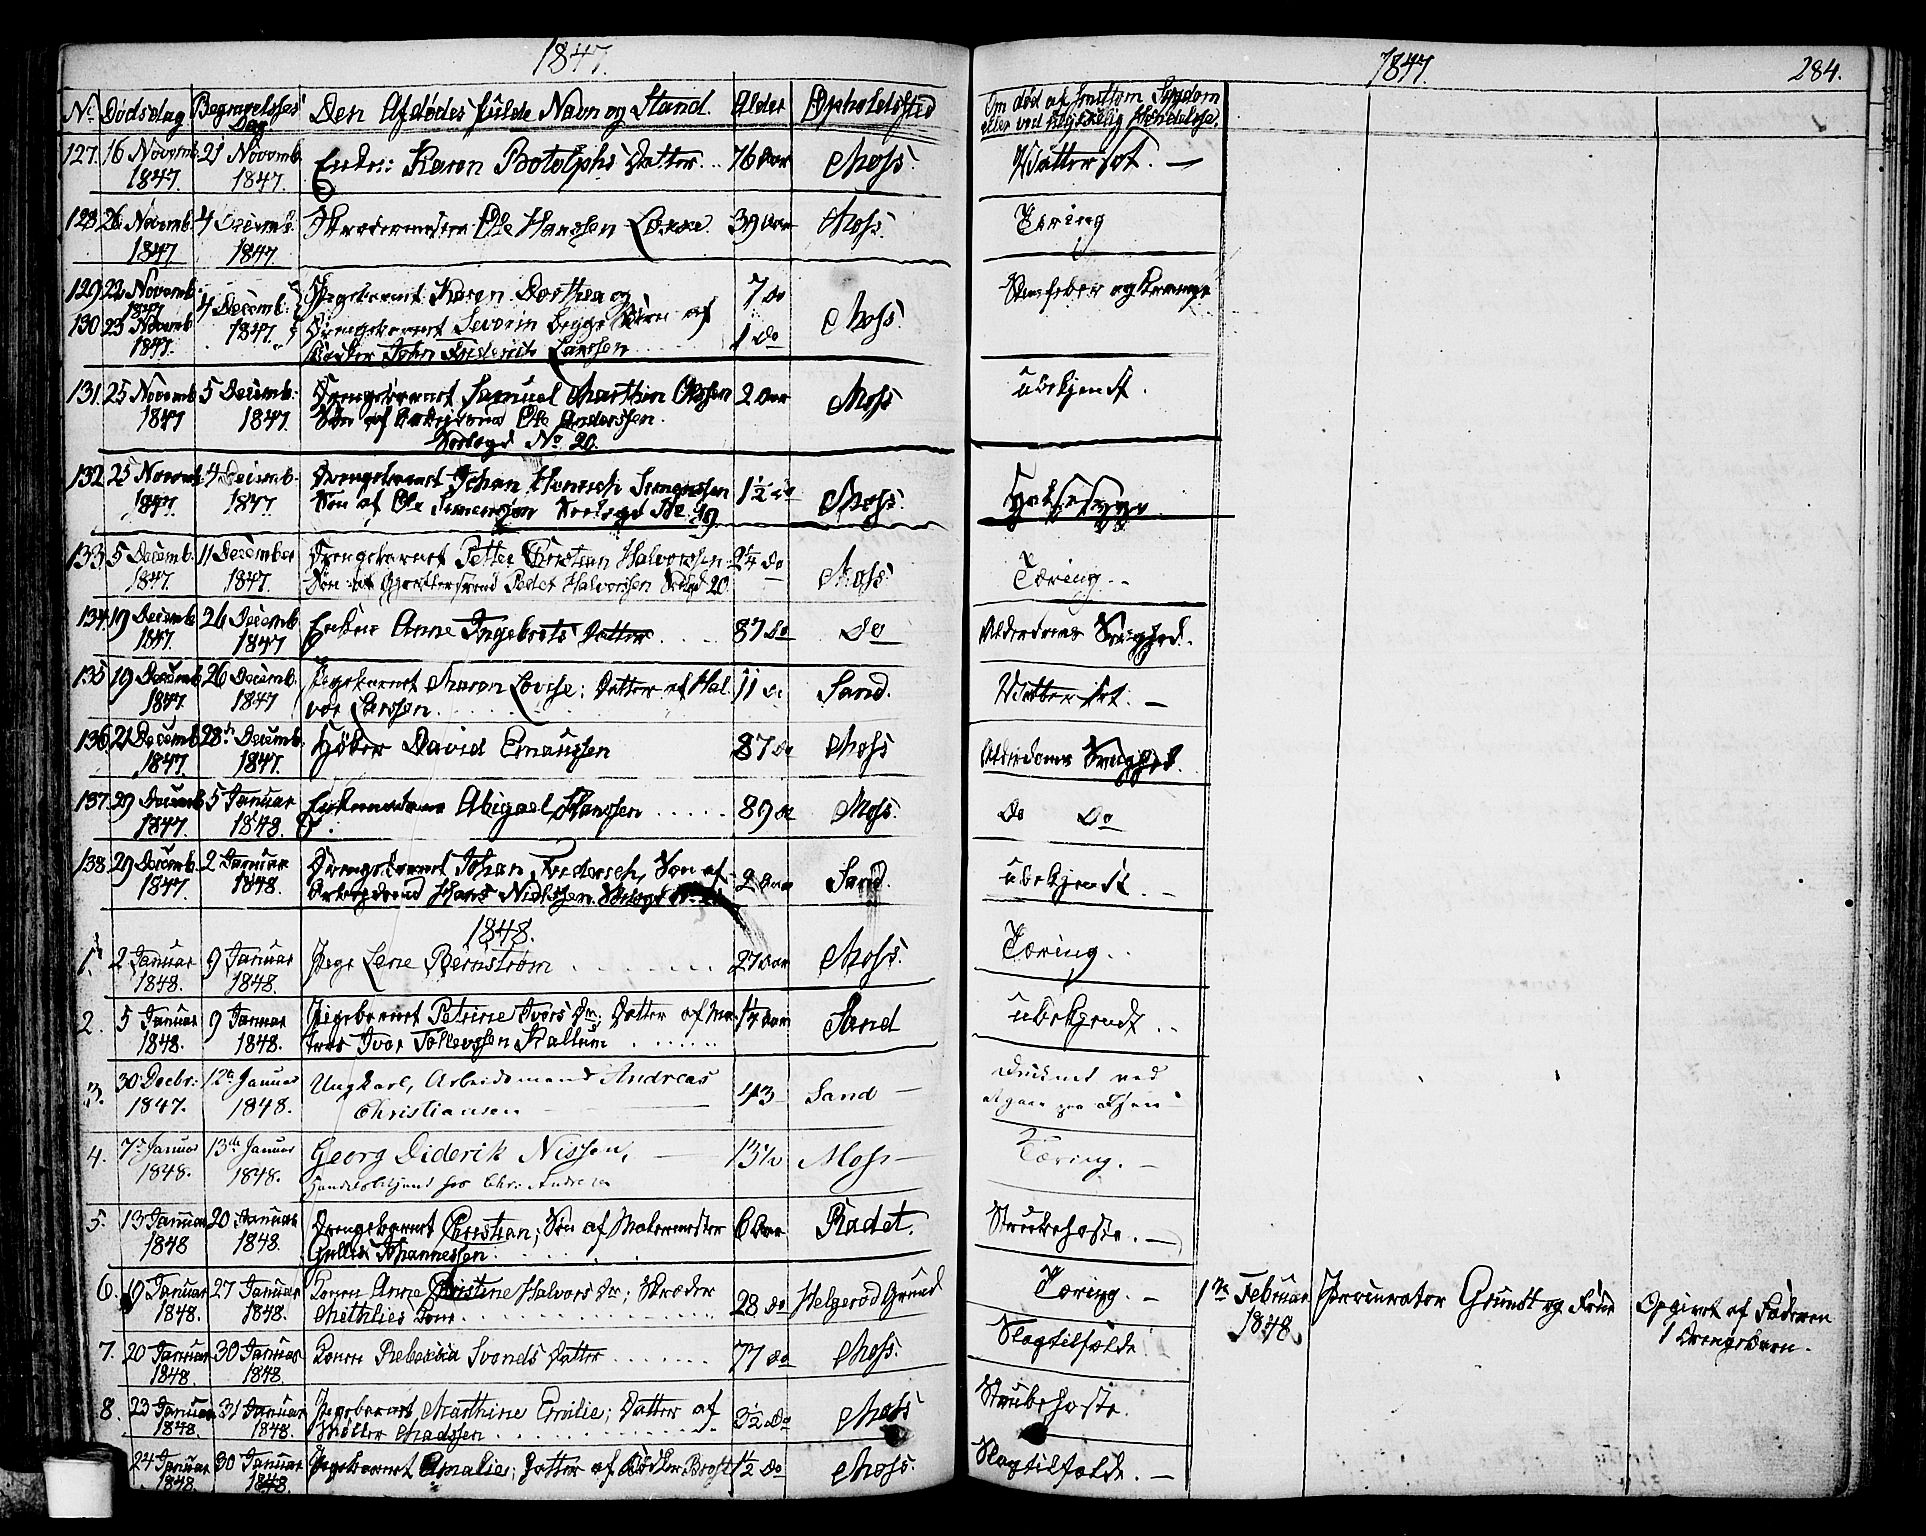 1847.
No Dødsdag Begravelses Dag Den Afdødes fulde Navn og Stand. Alder Opholdssted
127. 16 Novemb. 1847. 21 Novemb. 1847. Enke: Karen Botolphs Datter .. 76 Aar Moss.
128. 26 Novemb. 1847 4 Decemb. 1847. Skredermester Ole Hanssen 39 Aar Moss.
129. 22 Novemb. 1847 4 Decemb. 1847. Pigebarnet Karen Dorthea og 7 Do Moss.
130. 23 Novemb. 1847. Drengebarnet Severin begge Børn af 1 Do
John Friderich Larssen
131. 25 Novemb. 1847 5 Decemb. 1847. Drengebarnet Samuel Marthin Olssen 2 Aar Moss
Søn af Ole Anderssen.
Seeløgd No 20.
132. 25 Novemb. 1847. 4 Decemb. 1847. Drengebarnet Johan Henrich Simenssen 1½ Do Moss.
Søn af Ole Simenssen No. 19.
133. 5 Decemb. 1847. 11 December 1847. Drengebarnet Petter Christian Halvorssen 2¼ Do Moss.
Søn af Peder Halvorssen 20.
134. 19 Decemb. 1847. 26 Decemb. 1847 Enke Anne Ingebrets Datter . . . 87 Do Do
135 19 Decemb. 1847. 26 Decemb. 1847 Pigebarnet Maren Lovise; Datter af Hal- 11 Do Sand.
vor Larssen.
136. 21 Decemb. 1847. 28de Decemb. 1847. Høker David Emaussen 87 Do Moss
137. 29 Decemb. 1847. 5 Januar 1848. Enkemadame Abigael Hanssen ..... 89 Do Moss.
138. 29 Decemb. 1847. 2 Januar 1848. Drengebarnet Johan Frederich, Søn af 2 Aar Sand.
Hans Nielssen.
1848.
1. 2 Januar 1848. 9 Januar 1848. Pige Lene Bernstrøm . . . . . . 27 Aar Moss.
2. 5 Januar 1848. 9 Januar 1848. Pigebarnet Petrine Ivers Dr. Datter af Ma- 1¼ Aar Sand
tros Iver Tollevssen Kallum . . . . . .
3. 30 Decbr: 1847. 12te Januar 1848. Ungkarl, Arbeidsmand Andreas 43 Sand —
Christiansen
4. 7de Januar 1848. 13de Januar 1848. Georg Diderik Nissen, 13½ Moss —
hos Chr: Andresen
5. 13 Januar 1848 20 Januar 1848. Drengebarnet Christian; Søn af Malermester 6 Aar Radet.
Gullik Johannessen.
6. 19 Januar 1848. 27 Januar 1848. Konen Anne Christine Halvors Dr; Skræder 28 Do Helgerød Grund
Methlies Kone.
7. 20 Januar 1848. 30 Januar 1848. Konen Rebecka Svends Datter . . . . . . 77 Do Moss.
8. 23 Januar 1848. 31 Januar 1848. Pigebarnet Marthine Emilie; Datter af 3½ Do Moss
Møller Madssen
24 Januar 1848. 30 Januar 1848. Pigebarnet Amalie; Datter af Bødker 1½ Do Moss.
1847.
284.
Om død af smittsom Sygdom
eller ved ulykkelig Hændelse.
Wattersot. —
Tæring
og Krampe
ubekjendt.
Halsesyge.
Tæring. ..
Alderdoms Svaghed.
Wattersot. —
Alderdoms Svaghed.
Do Do
ubekjendt. —
Tæring. .
ubekjendt. .
Druknet ved
Tæring. —
Strubehoste. —
Tæring. —
1de Februar 1848. Procurator Grundt og Frue Opgivet af Faderen
1 Drengebarn.
Slagtilfælde.
Strubehoste.
Slagtilfælde. —